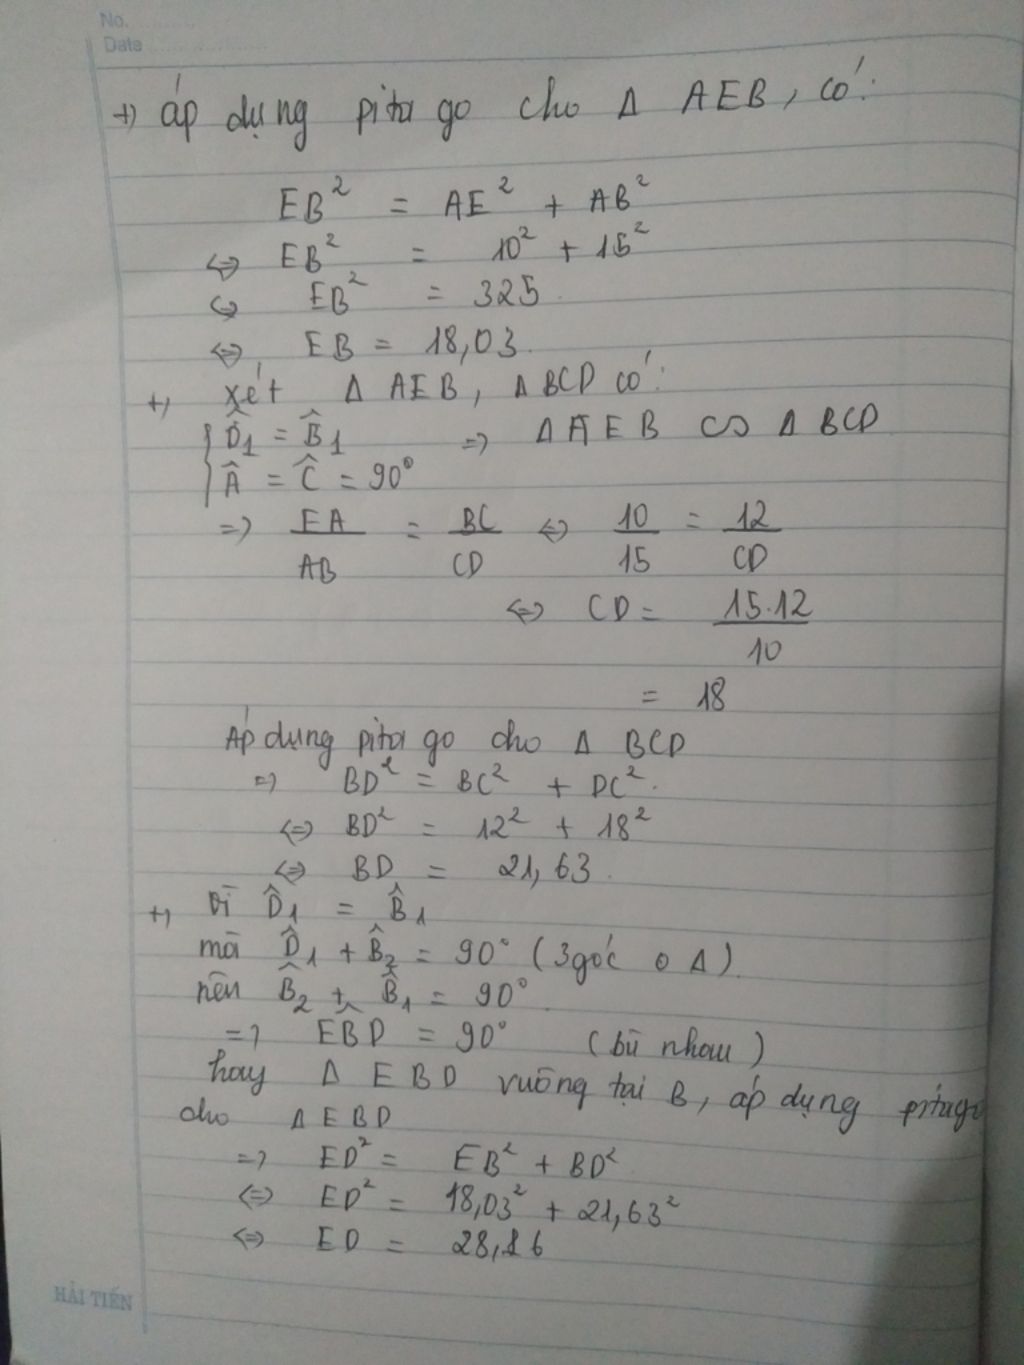 No.
Date
+) áp dụng pita go cho Δ AEB, có:
EB² = AE² + AB²
⇔ EB² = 10² + 15²
⇔ EB² = 325
⇔ EB = 18,03
+) xét Δ AEB, Δ BCD có:
{ D̂₁ = B̂₁ ⇒ Δ AEB ∽ Δ BCD
Â = Ĉ = 90°
⇒ EA/AB = BC/CD ⇔ 10/15 = 12/CD
⇔ CD = 15.12/10
= 18
Áp dụng pita go cho Δ BCD
⇒ BD² = BC² + DC².
⇔ BD² = 12² + 18²
⇔ BD = 21,63.
+) Vì D̂₁ = B̂₁
mà D̂₁ + B̂₂ = 90° (3 góc ở Δ).
nên B̂₂ + B̂₁ = 90°.
⇒ EB̂D = 90° (bù nhau)
hay Δ EBD vuông tại B, áp dụng pitago
cho Δ EBD
⇒ ED² = EB² + BD²
⇔ ED² = 18,03² + 21,63²
⇔ ED = 28,16
HẢI TIẾN